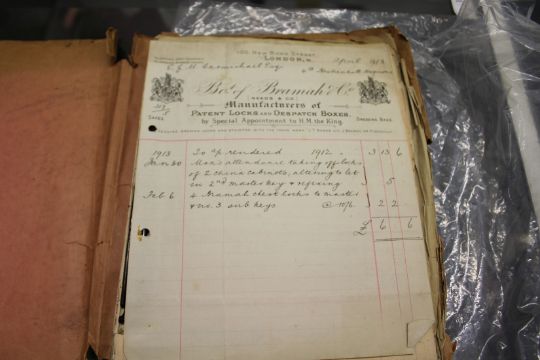 100, New Bond Street,
London, W. April 1913
Bot. of Bramah & Co.
Manufacturers of
Patent Locks and Despatch Boxes.
by Special Appointment to H.M. the King.
Safes
Dressing Bags
1913 To a/c rendered 1912 3 13 6
Jan 30 Man's attendance taking off locks
of 2 china cabinets, altering to let
in 2nd master key & refixing 5
Feb 6 4 Bramah chest locks to master
& no. 3 sub keys @ 10/6 2 2
6 6